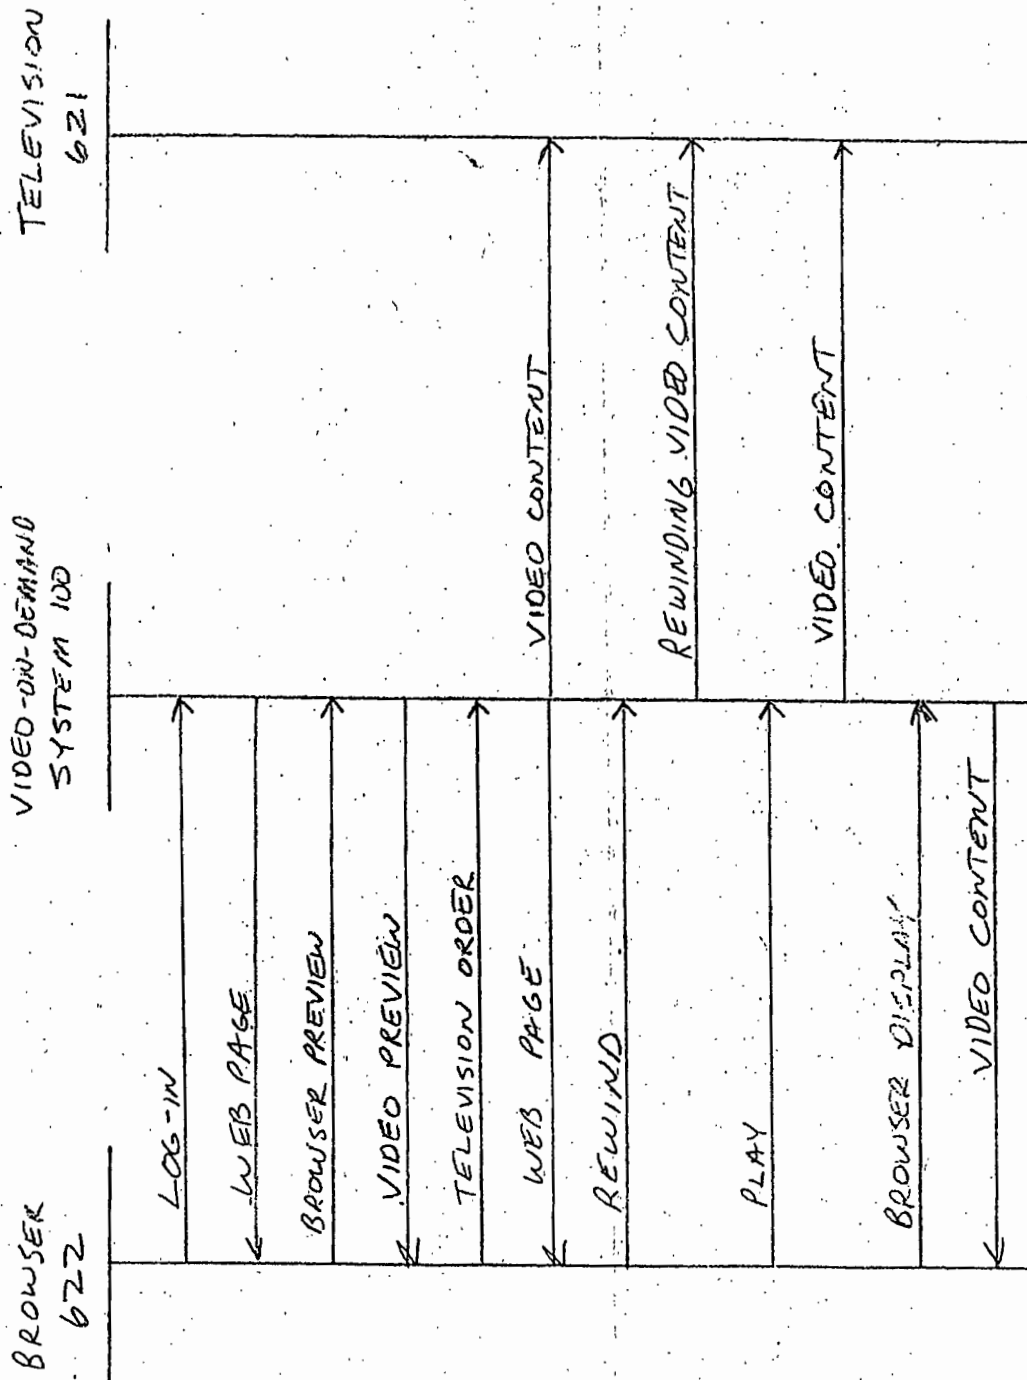 BROWSER
622
VIDEO-ON-DEMAND
SYSTEM 100
TELEVISION
621
LOG-IN
WEB PAGE
BROWSER PREVIEW
VIDEO PREVIEW
TELEVISION ORDER
VIDEO CONTENT
WEB PAGE
REWIND
REWINDING VIDEO CONTENT
PLAY
VIDEO CONTENT
BROWSER DISPLAY
VIDEO CONTENT